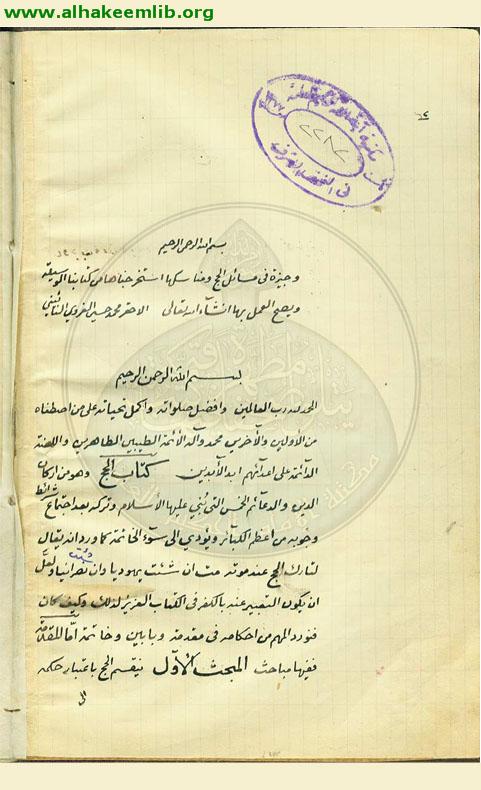 www.alhakeemlib.org
بسم الله الرحمن الرحيم
وجيزة في مسائل الحج ومناسكها استخرجناها من كتابنا الوسيلة
ويصح العمل بها انشآء الله تعالى الاحقر محمد حسين الغروي النائيني
بسم الله الرحمن الرحيم
الحمد لله رب العالمين وافضل صلواته واكمل تحياته على من اصطفاه
من الأولين والآخرين محمد وآله الأئمة الطيبين الطاهرين واللعنة
الدآئمة على اعدآئهم ابد الآبدين كتاب الحج وهو من اركان
الدين والدعآئم الخمس التي بُني عليها الأسلام وتركه بعد اجتماع شرائط
وجوبه من اعظم الكبآئر ويؤدي الى سوٓء الخاتمة كما ورد انه يقال
لتارك الحج عند موته مت ان شئت يهوديا وان شئت نصرانيا ولعلّ
ان يكون التعبير عنه بالكفر في الكتاب العزيز لذلك وكيف كان
فنورد المهم من احكامه في مقدمة وبابين وخاتمة امّا المقدّمة
ففيها مباحث المبحث الأوّل ينقسم الحج باعتبار حكمه